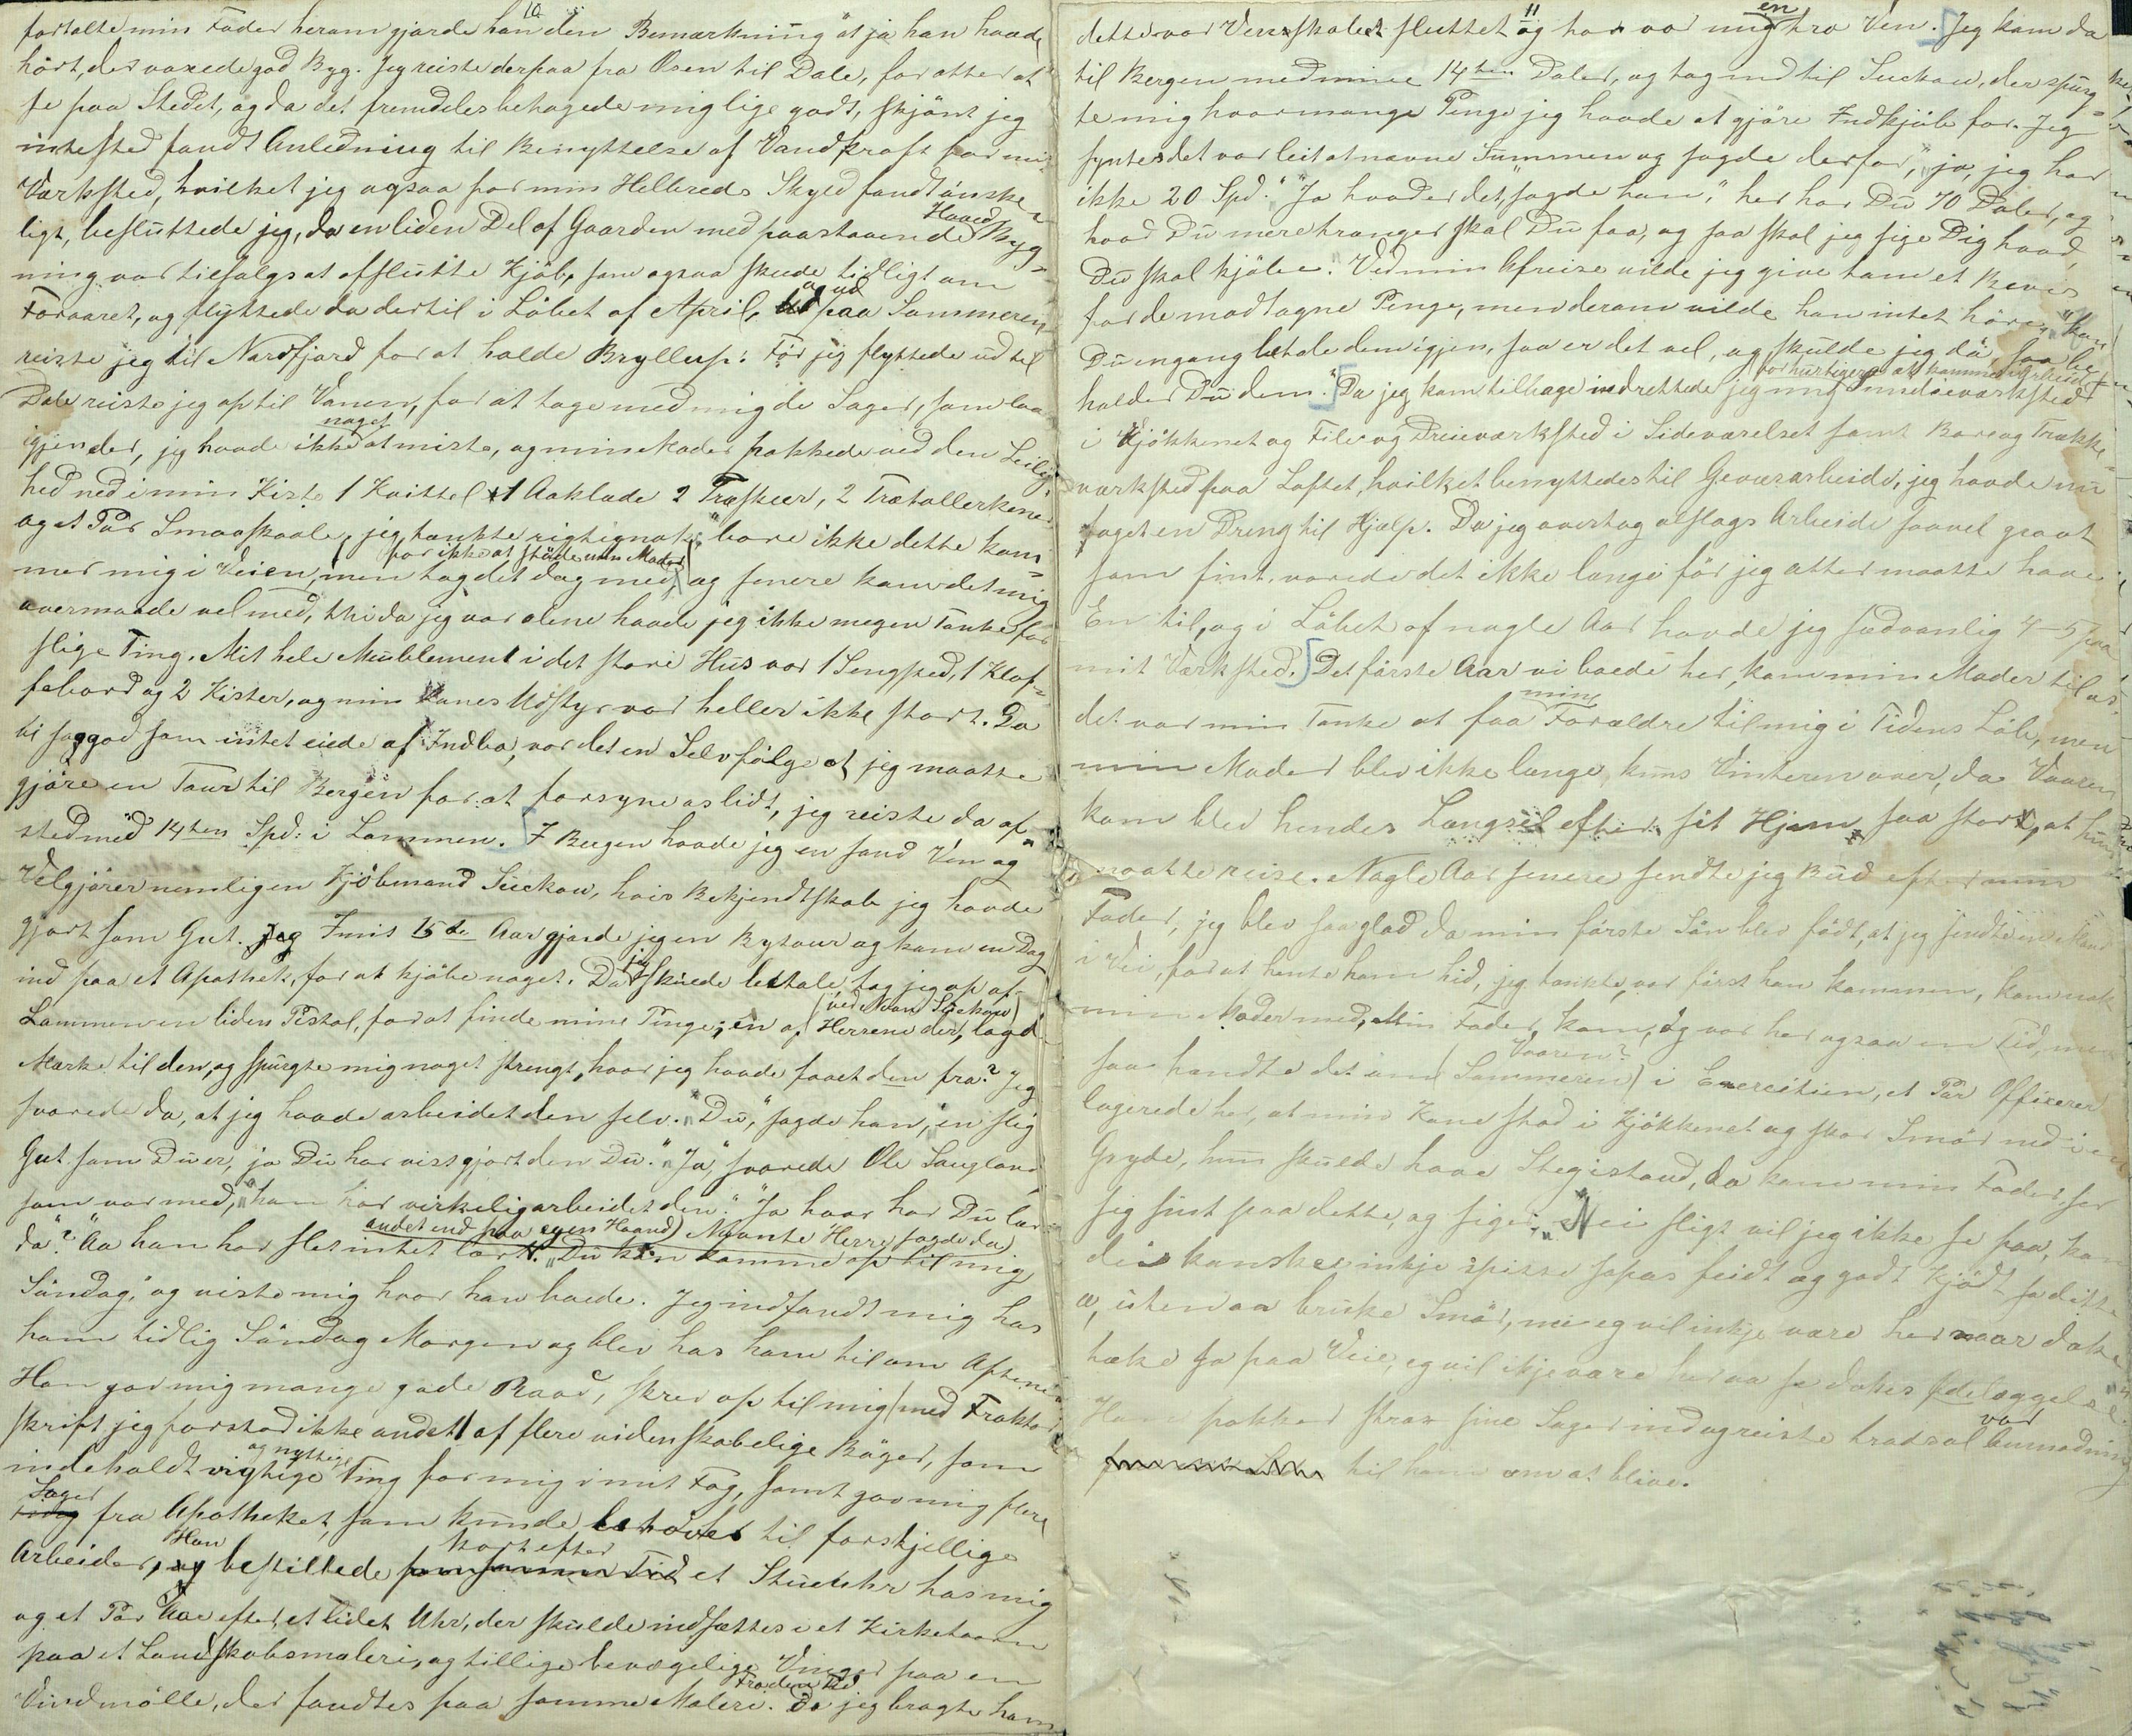 10
fortalte min Fader herom gjorde han den Bemærkning at ja han havde
hört, der voxede god Byg. Jeg reiste derpaa fra Osen til Dale, for atter at
se paa Stedet, og da det fremdeles behagede mig lige godt, skjönt jeg
intested fandt Anledning til Benyttelse af Vandkraft for mit
Værksted, hvilket jeg ogsaa for min Helbreds Skyld fandt önske-
ligt, besluttede jeg, da en liden Del af Gaarden med paastaaende Hoved Byg-
ning var tilsalgs at afslutte Kjöb, som ogsaa skede tidligt om
Foraaret, og flyttede da dertil i Löbet af April, og ud paa Sommeren
reiste jeg til Nordfjord for at holde Bryllup. För jeg flyttede ud til
Dale reiste jeg op til Vanen, for at tage med mig de Sager, som laa
igjen der, jeg havde ikke noget at miste, og min Moder pakkede ved den Leilig-
hed ned i min Kiste 1 Kvittel 1 Aaklæde 2 Træskeer, 2 Trætallerkener
og et Par Smaaskaale, jeg tænkte rigtignok "bare ikke dette kom-
mer mig i Veien", men tog det dog med, (for ikke at støde min Moder) og senere kom det mig
overmaade vel med, thi da jeg var alene havde jeg ikke megen Tanke for
slige Ting. Mit hele Meublement i det store Hus var 1 Sengsted, 1 Klaf-
febord og 2 Kister, og min Kones Udstyr var heller ikke stort. Da
vi saagod som intet eiede af Indbo, var det en Selvfölge at jeg maatte
gjöre en Tour til Bergen for at forsyne os lidt, jeg reiste da af-
sted med 14ten Spd: i Lommen. I Bergen havde jeg en sand Ven og
Velgjörer nemlig en Kjöbmand Suckow, hvis Bekjendtskab jeg havde
gjort som Gut. I mit 15de Aar gjorde jeg en Bytour og kom en Dag
ind paa et Apothek, for at kjöbe noget. Da jeg skulde betale tog jeg op af
Lommen en liden Pistol, for at finde mine Penge; en af Herrene der, (ved Navn Suckow) lagde
Mærke til den, og spurgte mig noget strengt, hvor jeg havde faaet den fra? Jeg
svarede da, at jeg havde arbeidet den selv. "Du," sagde han, "en slig
Gut som Du er, ja Du har vist gjort den Du." "Ja," svarede Ole Laugland
som var med, "han har virkelig arbeidet den." "Ja hvor har Du lær
da"? "Aa han har slet intet lært. andet end paa egen Haand) Nævnte Herre sagde da) "Du kan komme op til mig
Söndag," og viste mig hvor han boede. Jeg indfandt mig hos
ham tidlig Söndag Morgen og blev hos ham til om Aftenen.
Han gav mig mange gode Raad, skrev op til mig (med Fraktur
skrift jeg forstod ikke andet) af flere videnskabelige Böger, som
indeholdt vigtige og nyttige Ting for mig i mit Fag, samt gav mig flere
Sager fra Apotheket, som kunde behöves til forskjellige
Arbeider, Han bestillede kort efter et Stueuhr hos mig
og et Par Aar efter, et lidet Uhr, der skulde indsættes i et Kirketaarn
paa et Landskabsmaleri, og tillige bevægelige Vinger paa en
Vindmölle, der fandtes paa samme Maleri. Fra den Tid Da jeg bragte ham
11
dette var Venskabet sluttet og han var mig en tro Ven. Jeg kom da
til Bergen med mine 14ten Daler, og tog ind til Suckow, der spurg-
te mig hvormange Penge jeg havde at gjöre Indkjöb for. Jeg
syntes det var leit at nævne Summen og sagde derfor, "ja, jeg har
ikke 20 Spd." "Ja hvad er det," sagde han, "her har Du 70 Daler, og
hvad Du mere trænger skal Du faa, og saa skal jeg sige Dig hvad
Du skal kjöbe." Ved min Afreise vilde jeg give ham et Bevis
for de modtagne Penge, men derom vilde han intet höre, "kan
Du engang betale dem igjen, saa er det vel, og skulde jeg dö, saa be-
holder Du dem." Da jeg kom tilbage indrettede jeg mig for hurtigere at komme i Arbeid Smedieværksted
i Kjökkenet og File og Dreieværksted i Sideværelset samt Bore og Trække-
værksted paa Loftet, hvilket benyttedes til Geværarbeide, jeg havde nu
taget en Dreng til Hjælp. Da jeg overtog alslags Arbeide saavel groft
som fint, varede det ikke længe för jeg atter maatte have
En til, og i Löbet af nogle Aar havde jeg sædvanlig 4-5 paa
mit Værksted. Det förste Aar vi boede her, kom min Moder til os,
det var min Tanke at faa mine Forældre til mig i Tidens Löb, men
min Moder blev ikke længe kuns Vinteren over, da Vaaren
kom blev hendes Længsel efter sit Hjem saa stor, at hun
maatte reise. Nogle Aar senere sendte jeg Bud efter min
Fader, jeg blev saa glad da min förste Sön blev födt, at jeg sendte en Mand
i Vei, for at hente ham hid, jeg tænkte, var först han kommen, kom nok
min Moder med, Min Fader kom, og var her ogsaa en Tid, men
saa hændte det om (Sommeren) Vaaren? i Exercitien, et Par Officerer
logerede her, at min Kone stod i Kjökkenet og skar Smör ned i en
Gryde, hun skulde have Stegistand, da kom min Fader, ser
sig sint paa dette, og siger: "Nei sligt vil jeg ikke se paa, kan
di kanskee inkje spisse sopas feidt og godt Kjödt so ditte
æ, uten aa bruke Smör, nei eg vil inkje være her naar dokke
tæke ja paa Veie, eg vil ikje være her aa se dokes ödelæggelse."
Han pakker strax sine Sager ind og reiste tradsal vor Anmodning
til ham om at blive.